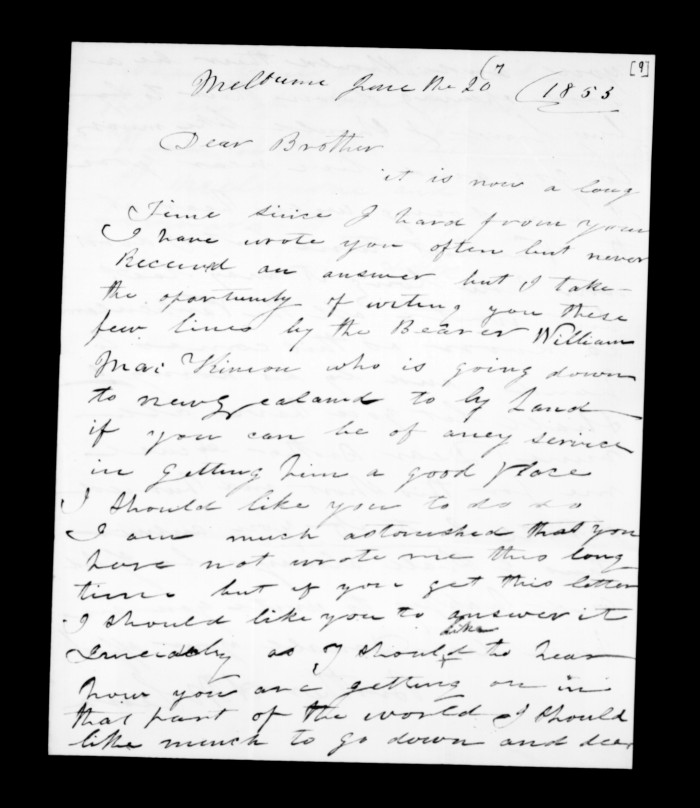 [9]
Melburne June the 20 1853
Dear Brother
it is now a long
Time since I hard from your
I have wrote you often but never
Receved an answer but I take
the oportunity of writing you these
few lines by the Bearer William
Mac Kinnon who is going down
to newzealand to by Land
if you can be of aney service
in getting him a good place
I should like you to do so
I am much astonished that you
have not wrote me this long
time but if you get this letter
I should like you to answer it
as I should like to hear
how you are getting on in
that part of the world I should
like much to go down and dear